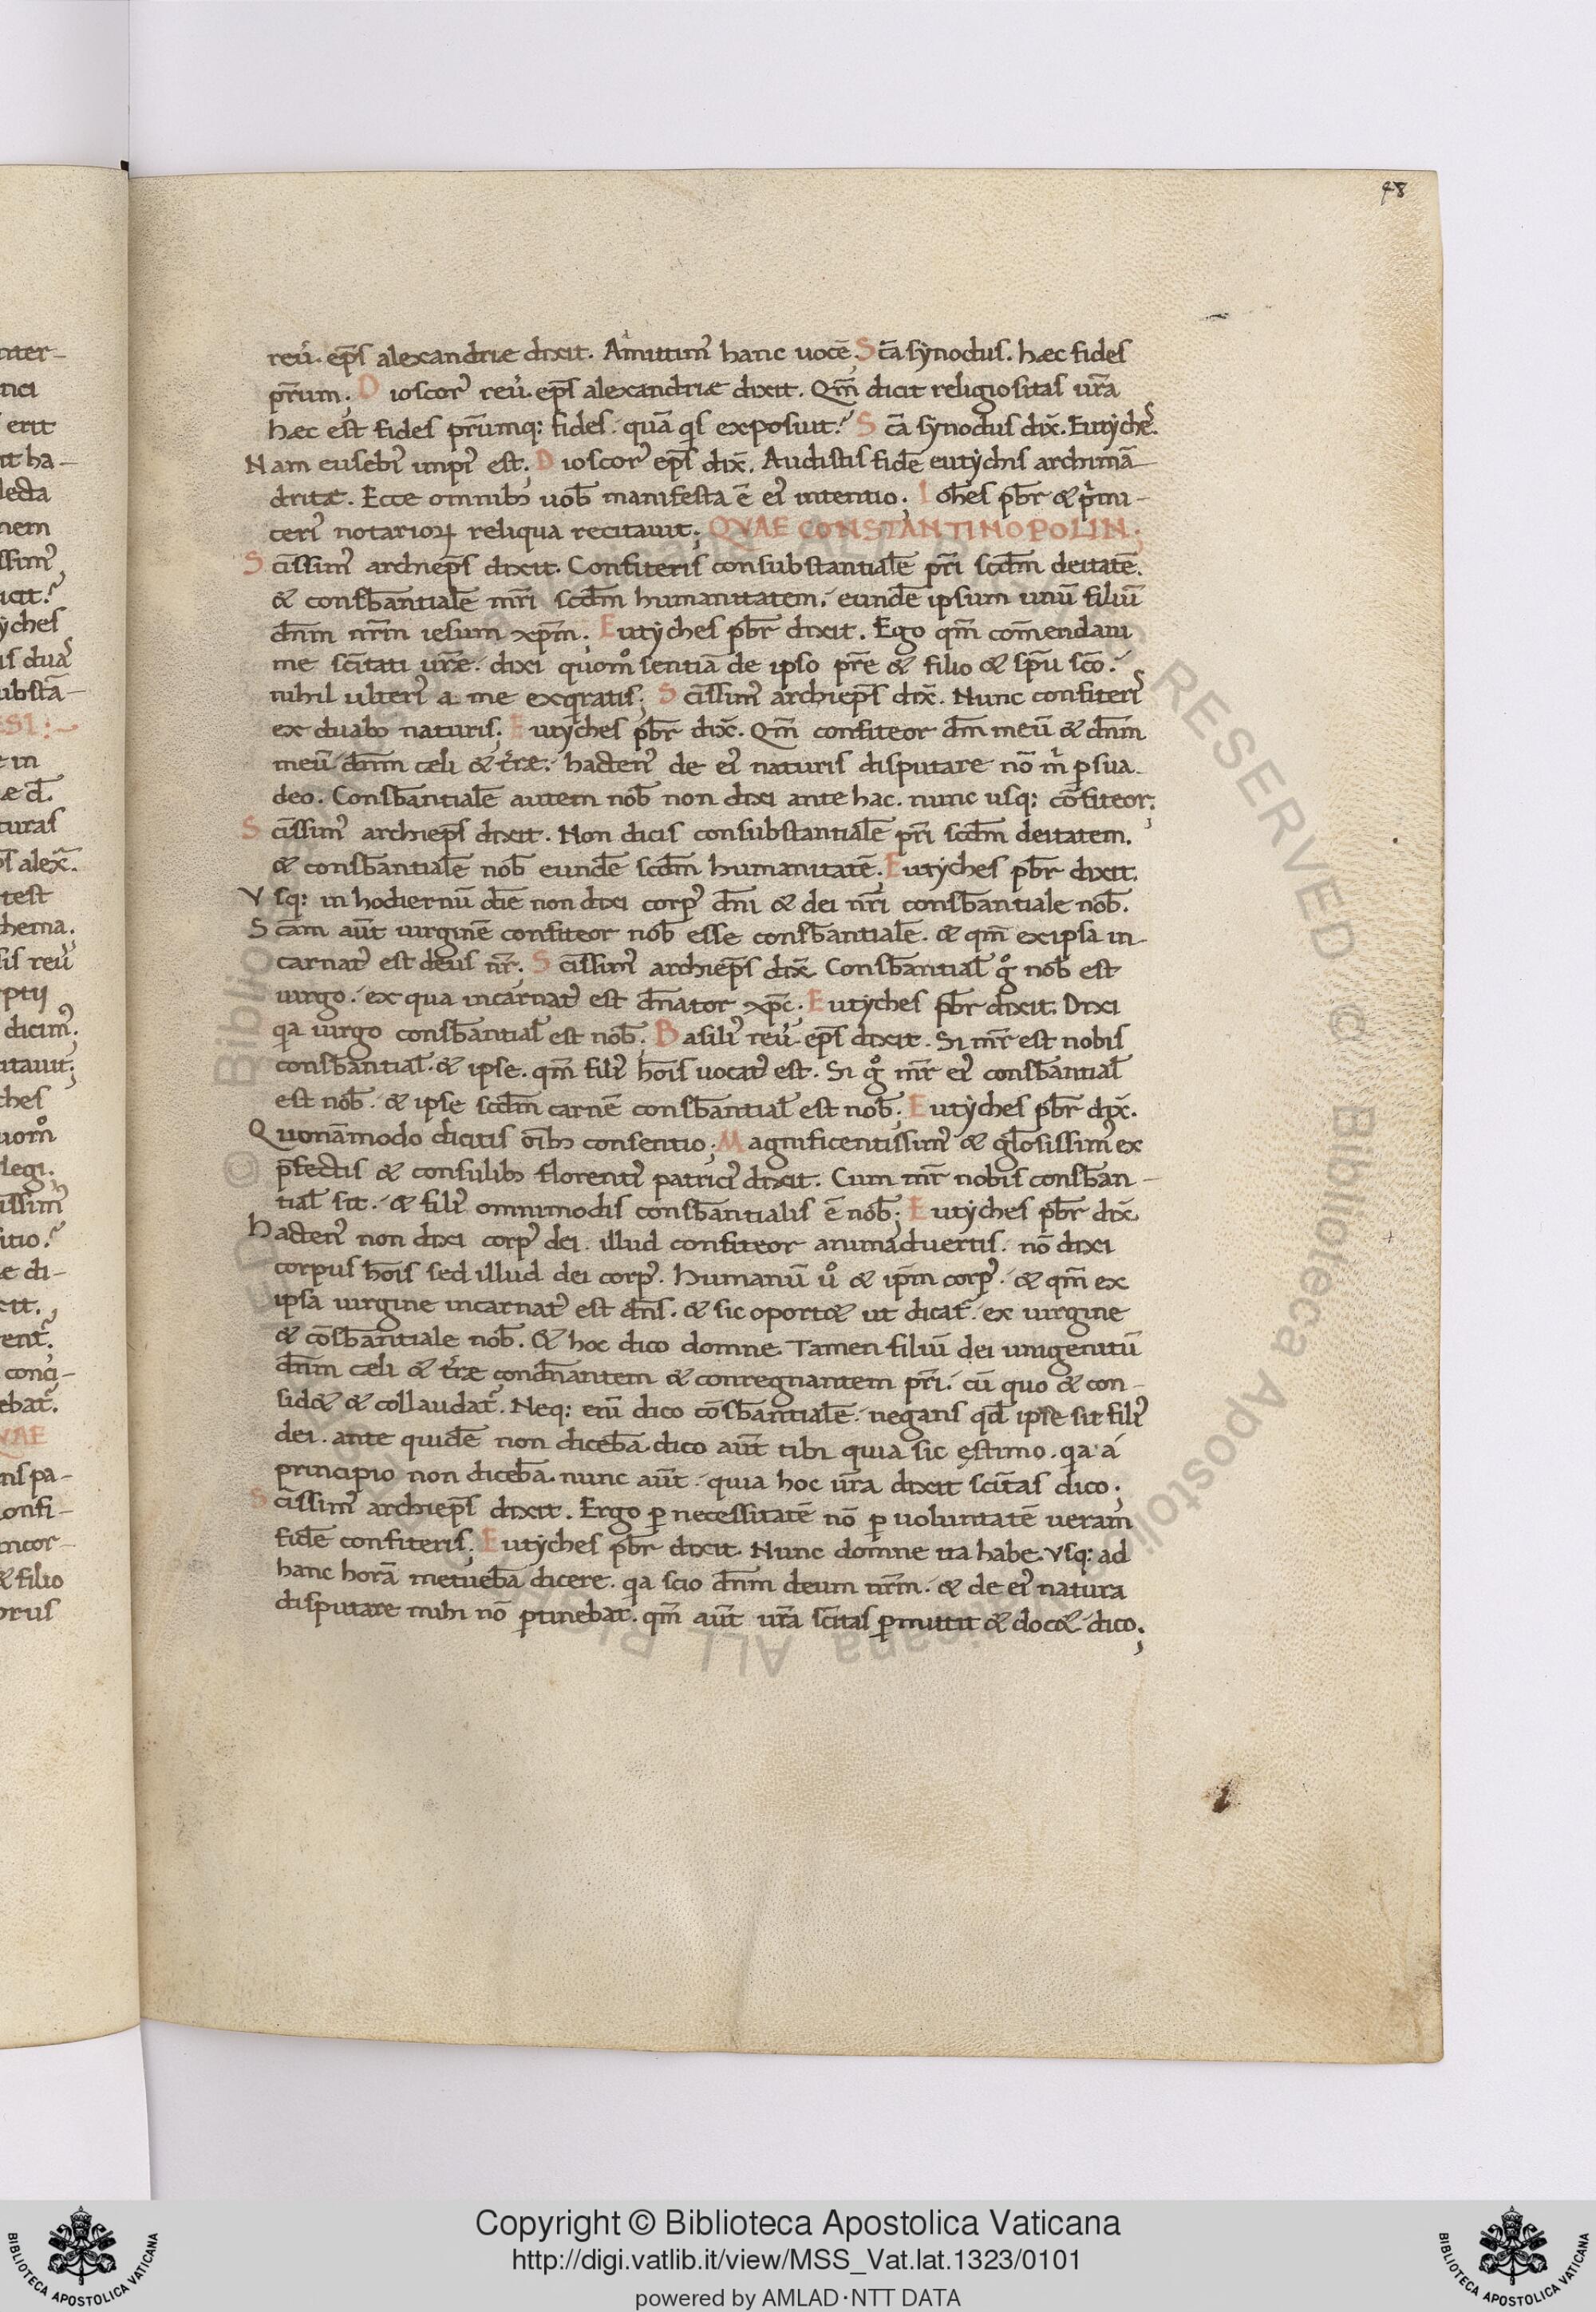 48
reuͥ. ep̅s alexandriæ dixit. Amittimꝰ hanc uocē. Sc̅a synodus. hæc fides
pr̅um. Dioscorꝰ reuͥ. ep̅s alexandriæ dixit. Qm̅ dicit religiositas ur̅a
hæc est fides pr̅umq: fides. quā qis exposuit? Sc̅a synodus dix̅. Eutychẽs.
Nam eusebiꝰ impiꝰ est. Dioscorꝰ ep̅s dix̅. Audistis fidē eutychis archimā
dritæ. Ecce omnibꝫ uob̅ manifesta ē eiꝰ intentio; Ioh̅es pb̅r & pͥmi-
ceriꝰ notarioꝝ reliqua recitauit; QVAE CONSTANTINOPOLIN;
Sc̅issimꝰ archiep̅s dixit. Confiteris consubstantialē pr̅i scd̅m deitatē.
& consb̅antialē mr̅i scd̅m humanitatem. eundē ipsum unū filiū
dn̅m nr̅m iesum xp̅m. Eutyches pb̅r dixit. Ego qm̅ com̅endaui
me sc̅itati ur̅e. dixi quomͦ sentiā de ipso pr̅e & filio & sp̅u sc̅o.
nihil ulteriꝰ a me exqͥratis; Sc̅issimꝰ archiep̅s dix̅. Nunc confiterꝭ
ex duabꝫ naturis; Eutyches pb̅r dix̅. Qm̅ confiteor dm̅ meū & dn̅m
meū dn̅m cæli & t̅ræ. hactenꝰ de eiꝰ naturis disputare nō mͥ ꝑsua
deo. Consb̅antialē autem nob̅ non dixi ante hac. nunc usq: cōfiteor;
Sc̅issimꝰ archiep̅s dixit. Non dicis consubstantialē pr̅i scd̅m deitatem.
& consb̅antialē nob̅ eundē scd̅m humanitatē. Eutyches pb̅r dixit.
Vsq: in hodiernū diē non dixi corpꝰ dn̅i & dei nr̅i consb̅antiale nob̅.
Sc̅am aut̅ uirginē confiteor nob̅ esse consb̅antialē. & qm̅ ex ipsa in-
carnatꝰ est deus nr̅. Sc̅issimꝰ archiep̅s dix̅. Consb̅antial̅ gͦ nob̅ est
uirgo. ex qua incarnatꝰ est dn̅ator xp̅c. Eutyches pb̅r dixit. Dixi
qa uirgo consb̅antial̅ est nob̅. Basiliꝰ reuͥ. ep̅s dixit. Si mr̅ est nobis
consb̅antial̅. & ipse. qm̅ filiꝰ ho̅is uocatꝰ est. Si gͦ mr̅ eiꝰ consb̅antial̅
est nob̅. & ipse scd̅m carnē consb̅antial̅ est nob̅; Eutyches pb̅r dix̅.
Quonāmodo dicitis oīb̅ consentio; Magnificentissimꝰ & gl̅osissimꝰ ex
p̅fectis & consulibꝫ florentiꝰ patriciꝰ dixit. Cum mr̅ nobis consb̅an-
tial̅ sit. & filiꝰ omnimodis consb̅antialis ē nob̅; Eutyches pb̅r dix̅.
Hactenꝰ non dixi corpꝰ dei. illud confiteor animaduertis. nō dixi
corpus ho̅is sed illud dei corpꝰ. humanū uͦ & ip̅m corpꝰ. & qm̅ ex
ipsa uirgine incarnatꝰ est dn̅s. & sic oport& ut dicat̉. ex uirgine
& cōsb̅antiale nob̅. & hoc dico domne. Tamen filiū dei unigenitū
dn̅m cæli & t̅ræ condn̅antem & conregnantem pr̅i. cū quo & con-
sid& & collaudat̉. Neq: enī dico cōsb̅antialē. negans qd̅ ipse sit filiꝰ
dei. ante quidē non dicebā dico aut̅ tibi quia sic ęstimo. qa a
principio non dicebā. nunc aut̅. quia hoc ur̅a dixit sc̅itas dico;
Sc̅issimꝰ archiep̅s dixit. Ergo ꝑ necessitatē nō ꝑ uoluntatē ueram
fidē confiteris. Eutyches pb̅r dixit. Nunc domne ita habe. vsq: ad
hanc horā metuebā dicere. qa scio dn̅m deum nr̅m. & de eiꝰ natura
disputare mihi nō ꝑtinebat. qm̅ aut̅ ur̅a sc̅itas ꝑmittit & doc& dico;
nter-
nci
erit
it ha-
leda
nem
ssimꝰ
icit?
yches
is duaꝝ
ubstā-
ESI:
t in
æ d̅.
turas
p̅s alex̅.
test
chema.
sis reuͥ
ptii
dicimꝰ.
citauit;
ches
uomͦ
legi.
issimꝰ
itio?
e di-
xit.
rent̉.
conci-
ebat̉.
VAE
ns pa-
onfi-
ncor-
& filio
orus
© Biblioteca Apostolica Vaticana ALL RIGHTS RESERVED © Biblioteca Apostolica Vaticana ALL RIGHTS RESERVED
Copyright © Biblioteca Apostolica Vaticana
http://digi.vatlib.it/view/MSS_Vat.lat.1323/0101
powered by AMLAD·NTT DATA
BIBLIOTECA APOSTOLICA VATICANA
BIBLIOTECA APOSTOLICA VATICANA